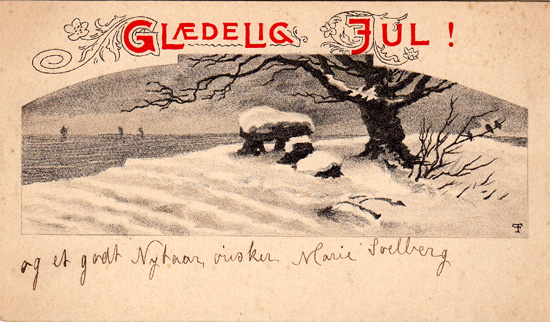 GLÆDELIG JUL !
og et godt Nytaar, ønsker Marie Solberg